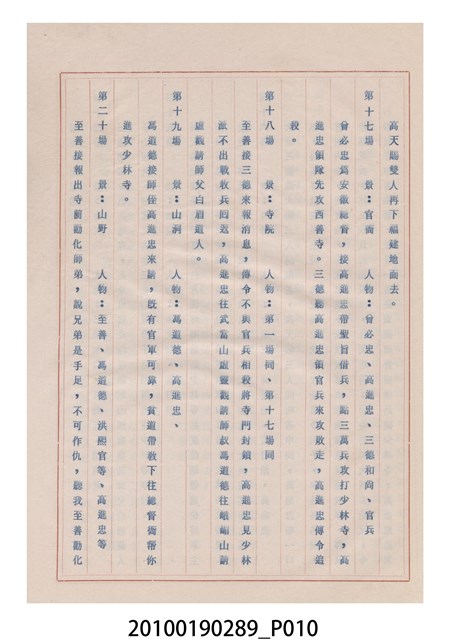 高天賜雙人再下福建地面去。
第十七場　景：官衙　人物：曾必忠、高進忠、三德和尚、官兵
曾必忠為安徽總督，接高進忠帶聖旨借兵，點三萬兵攻打少林寺，高
進忠領隊先攻西善寺。三德聽高進忠領官兵來攻敗走，高進忠傳令追
殺。
第十八場　景：寺院　人物：第一場同、第十七場同
至善接三德來報消息，傳令不與官兵相殺將寺門封鎖，高進忠見少林
派不出戰收兵回返，高進忠往武當山虛靈觀請師叔馮道德往峨嵋山請
虛觀請師父白眉道人。
第十九場　景：山洞　人物：馮道德、高進忠、
馮道德接師侄高進忠來請，既有官軍可靠，貧道帶教下往總督衙幫你
進攻少林寺。
第二十場　景：山野　人物：至善、馮道德、洪熙官等、高進忠等
至善接報出寺前勸化師弟，說兄弟是手足，不可作仇，聽我至善勸化
20100190289_P010